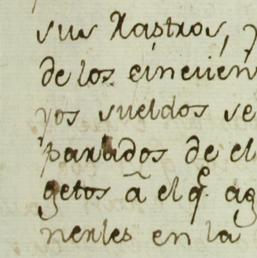 sus Rastros, y
de los cincuen
yos sueldos se
partados de el
getos â el q.^e ag
nerles en la